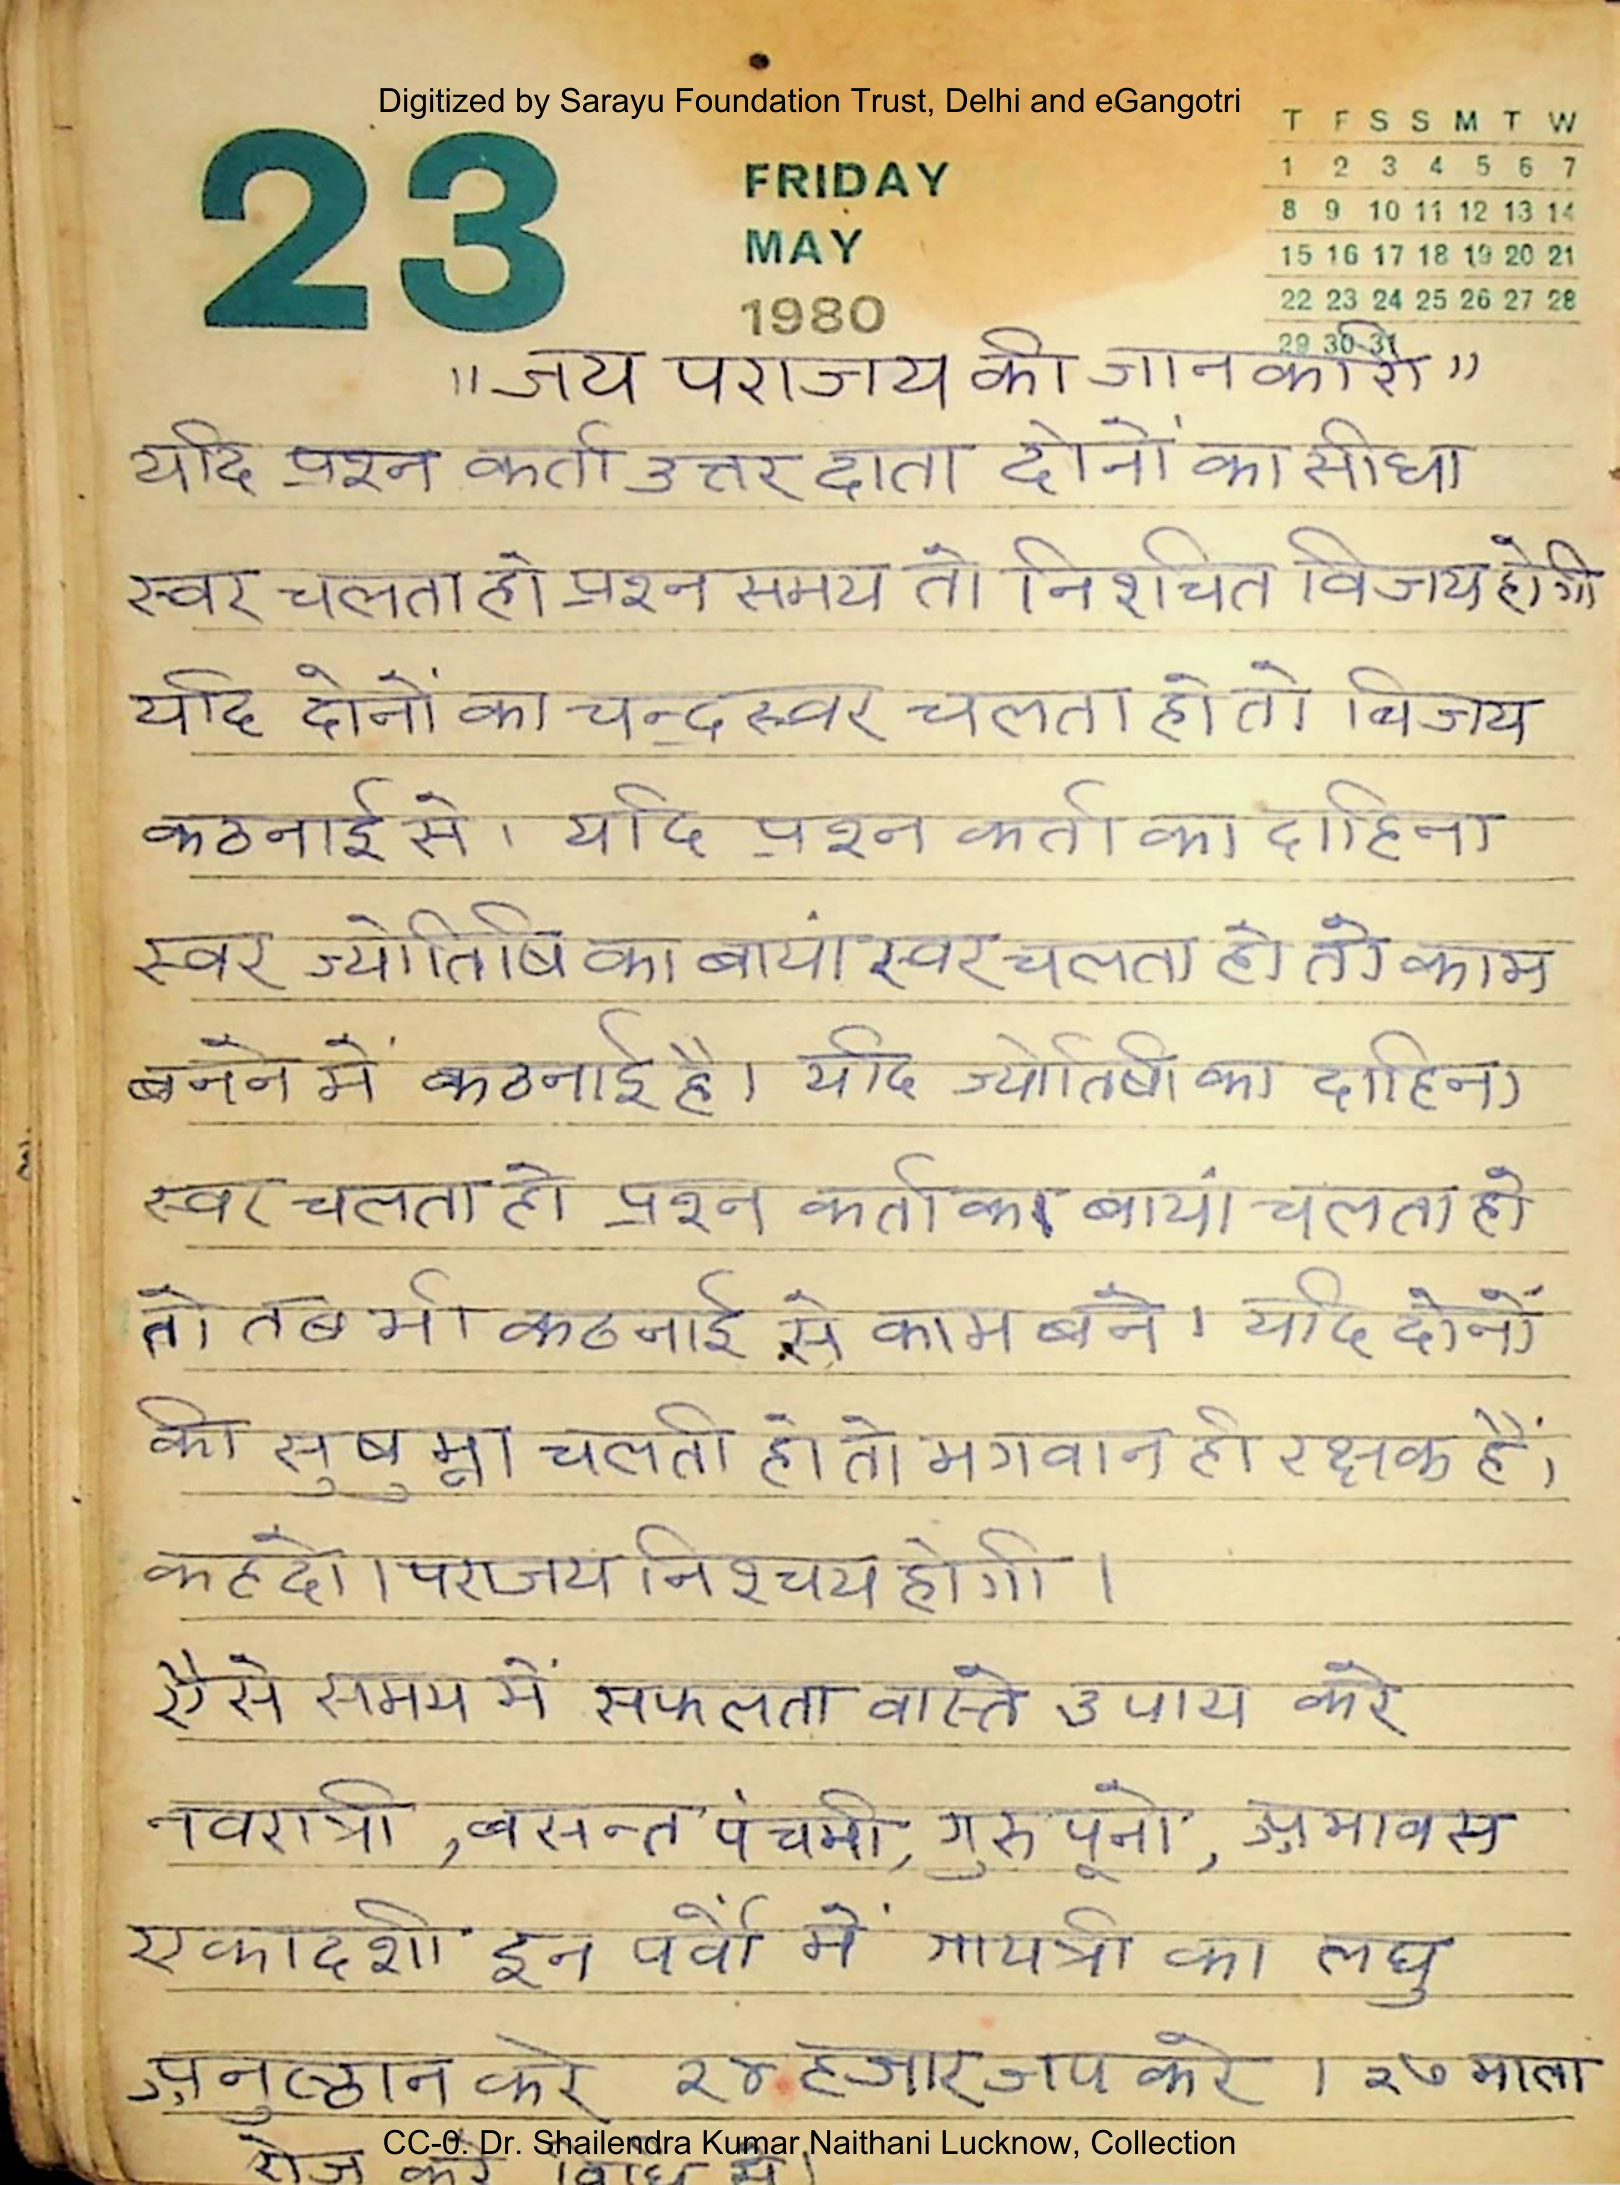 Digitized by Sarayu Foundation Trust, Delhi and eGangotri
23
FRIDAY
MAY
1980
T F S S M T W
1 2 3 4 5 6 7
8 9 10 11 12 13 14
15 16 17 18 19 20 21
22 23 24 25 26 27 28
29 30 31
"जय पराजय की जानकारी"
यदि प्रश्न कर्ता उत्तर दाता दोनों का सीधा
स्वर चलता हो प्रश्न समय तो निश्चित विजय होगी
यदि दोनों का चन्द्र स्वर चलता हो तो बिजय
कठनाई से। यदि प्रश्न कर्ता का दाहिना
स्वर ज्योतिषि का बायां स्वर चलता हो तो काम
बनने में कठनाई है। यदि ज्योतिषी का दाहिना
स्वर चलता हो प्रश्न कर्ता का बायां चलता हो
तो तब भी कठनाई से काम बने। यदि दोनों
की सुषुम्ना चलती हो तो भगवान ही रक्षक हैं।
कहदो। पराजय निश्चय होगी।
ऐसे समय में सफलता वास्ते उपाय करे
नवरात्री, बसन्त पंचमी, गुरु पूनो, अमावस
एकादशी इन पर्वों में गायत्री का लघु
अनुष्ठान करे २४ हजार जप करे। २७ माला
रोज करे विधि से।
CC-0. Dr. Shailendra Kumar Naithani Lucknow, Collection